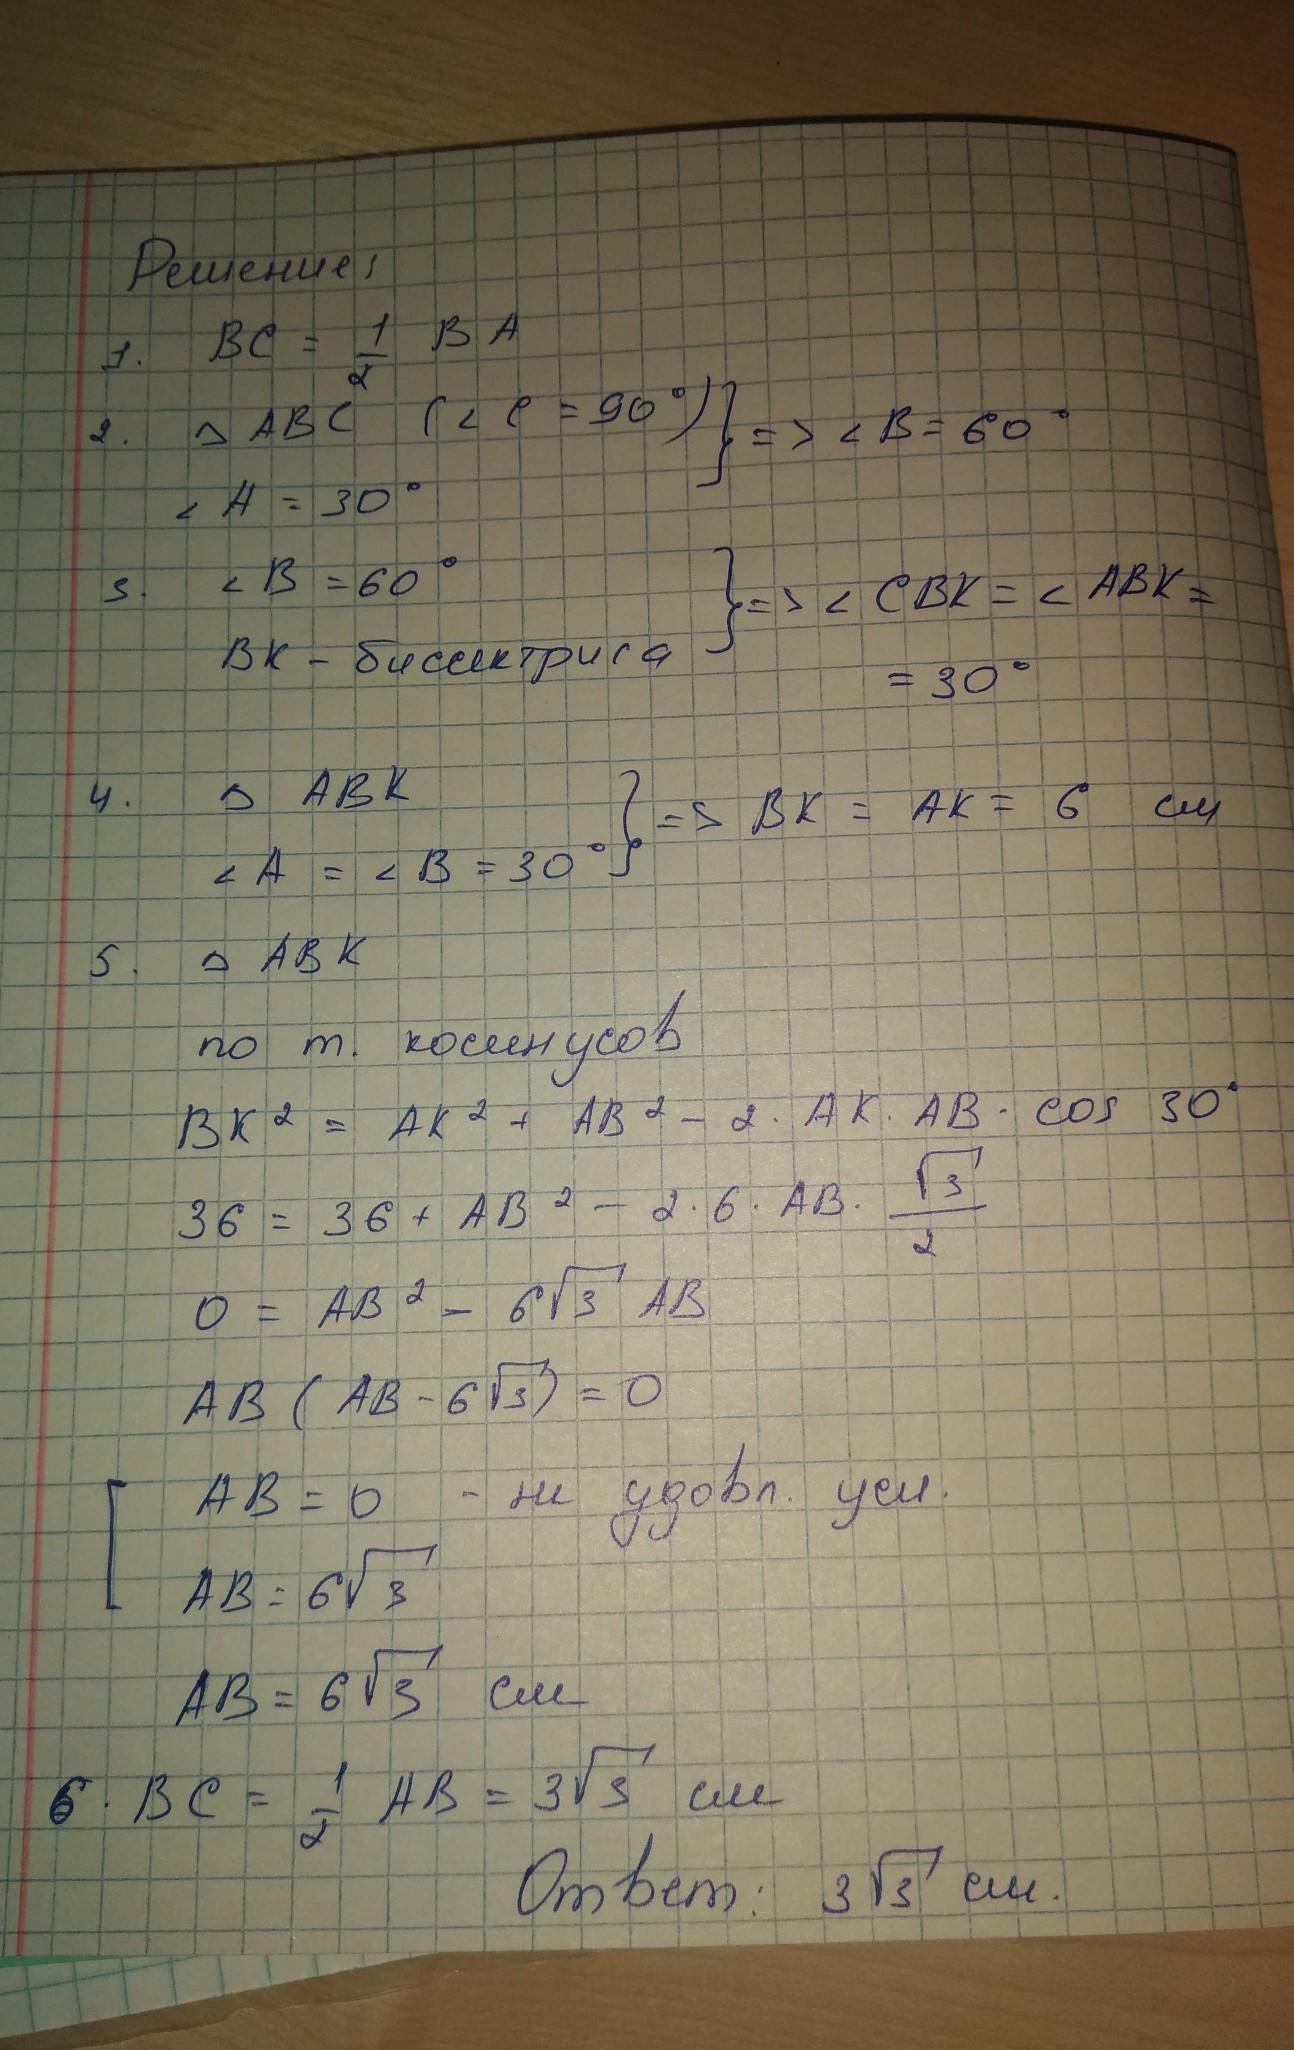 Решение:
1. BC = 1/2 BA
2. △ ABC (∠ C = 90°) } => ∠ B = 60°
∠ A = 30°
3. ∠ B = 60° } => ∠ CBK = ∠ ABK =
BK – биссектриса = 30°
4. △ ABK } => BK = AK = 6 см
∠ A = ∠ B = 30°
5. △ ABK
по т. косинусов
BK² = AK² + AB² – 2 · AK · AB · cos 30°
36 = 36 + AB² – 2 · 6 · AB · √3/2
0 = AB² – 6√3 AB
AB ( AB – 6√3) = 0
[ AB = 0 - не удовл. усл.
AB = 6√3
AB = 6√3 см
6. BC = 1/2 AB = 3√3 см
Ответ: 3√3 см.